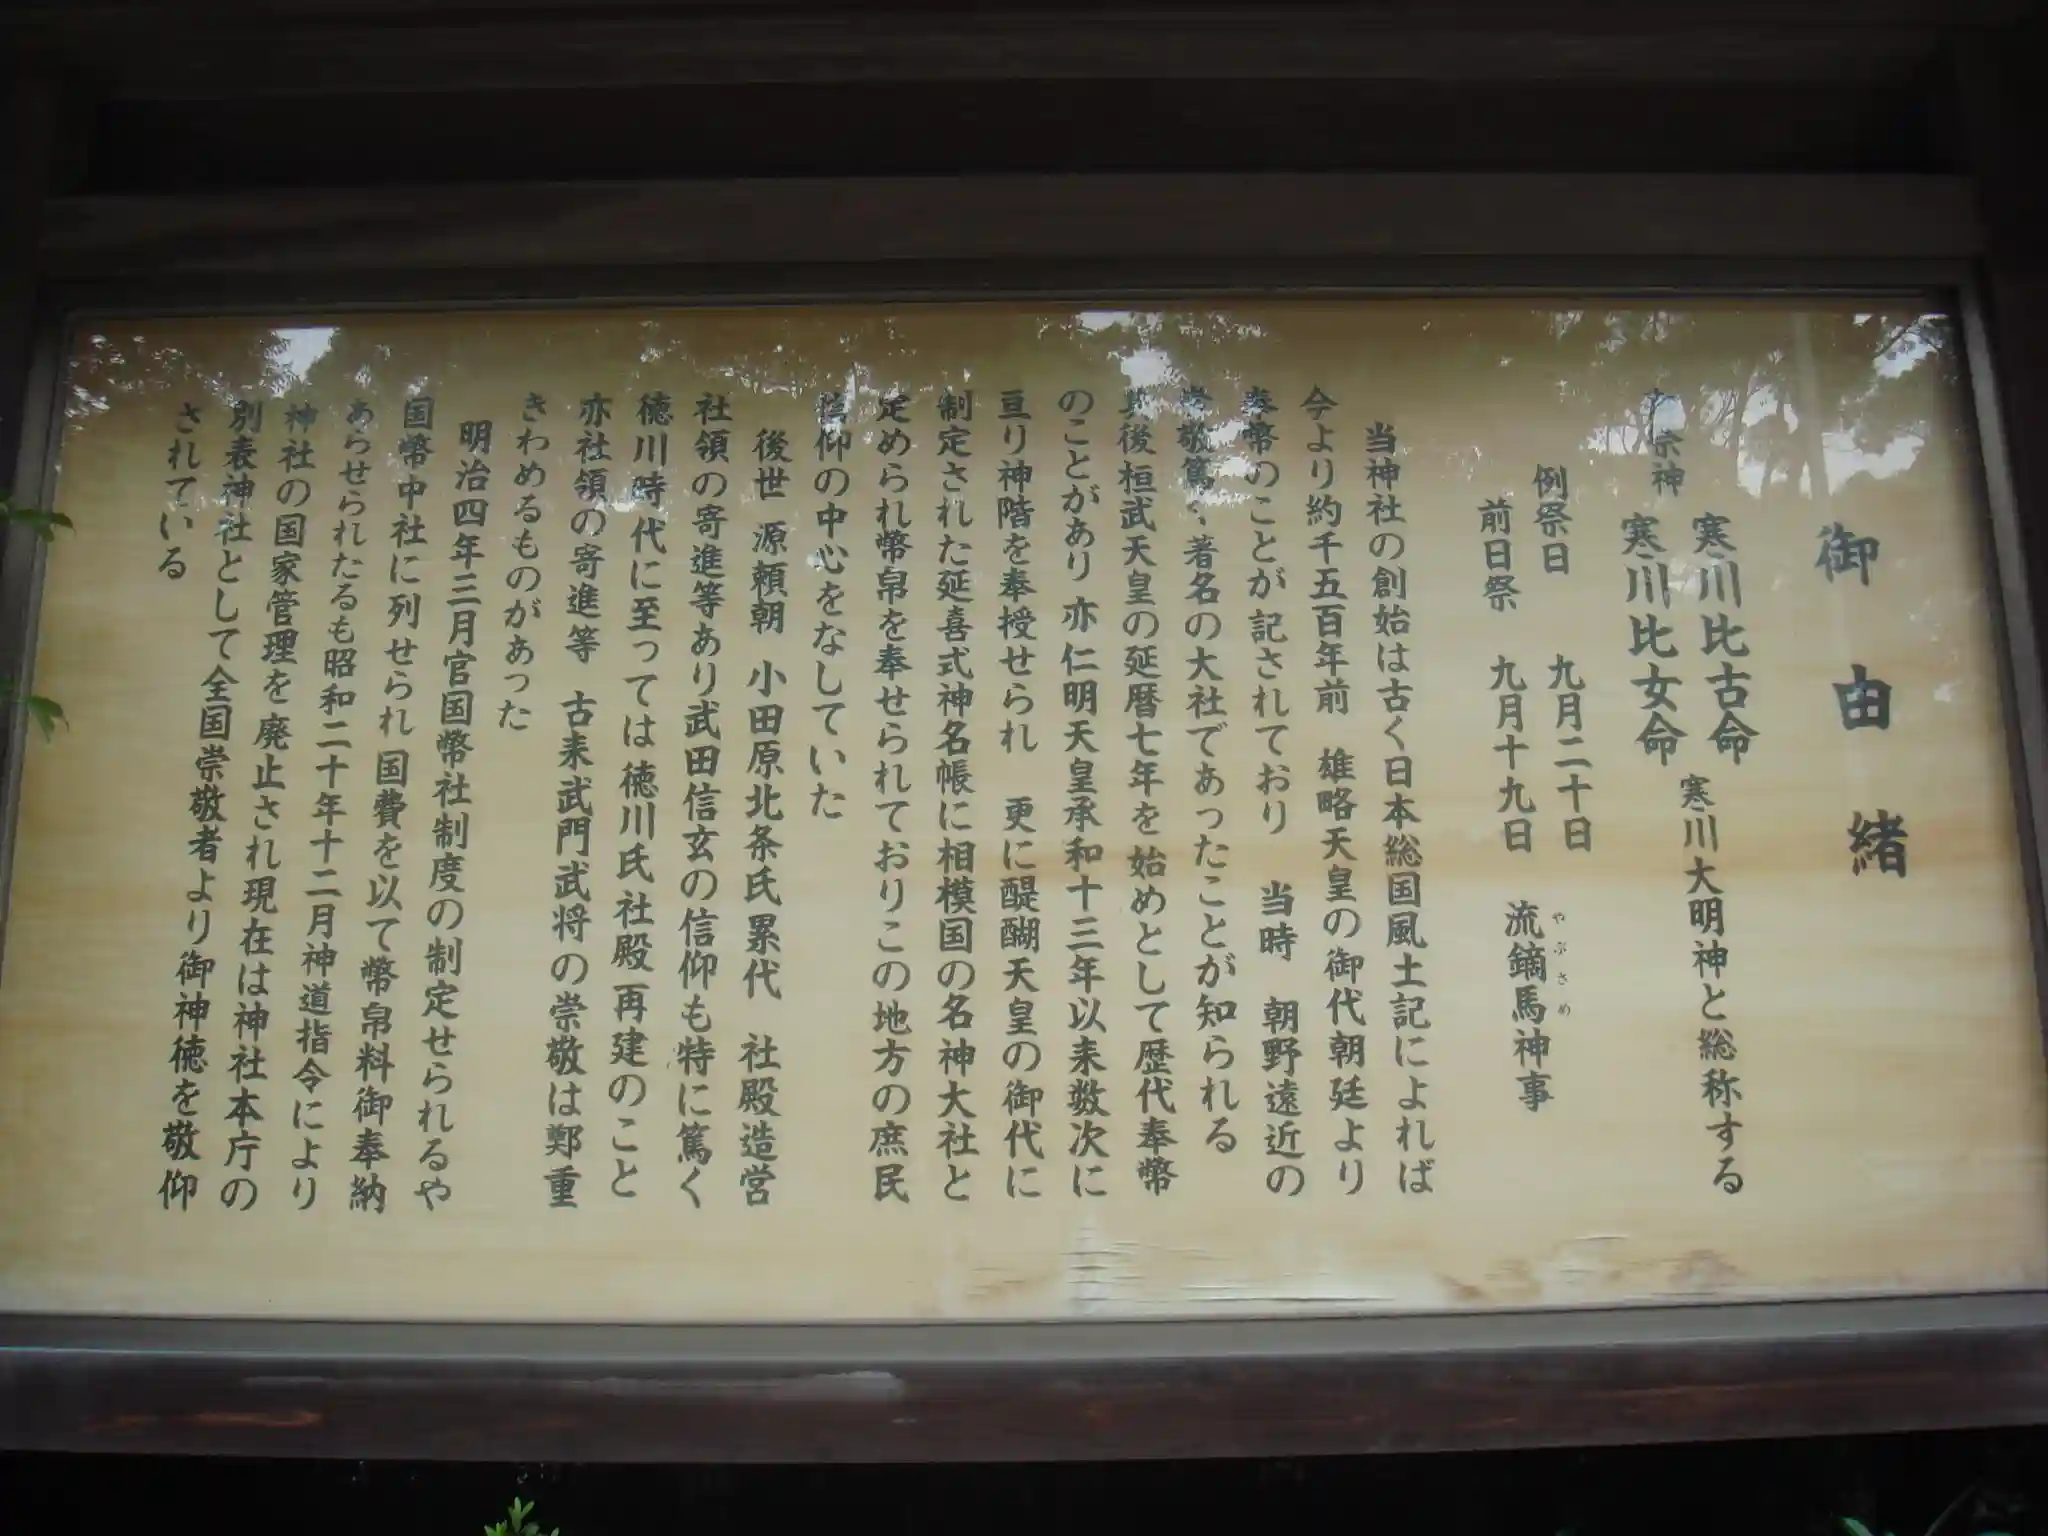 御由緒
寒川比古命
寒川比女命
寒川大明神と総称する
神
例祭日 九月二十日
前日祭 九月十九日 流鏑馬神事
やぶさめ
当神社の創始は古く日本総国風土記によれば
今より約千五百年前 雄略天皇の御代朝廷より
奉幣のことが記されており 当時 朝野遠近の
崇敬篤く 著名の大社であったことが知られる
其後桓武天皇の延暦七年を始めとして歴代奉幣
のことがあり 亦仁明天皇承和十三年以来数次に
亘り神階を奉授せられ 更に醍醐天皇の御代に
制定された延喜式神名帳に相模国の名神大社と
定められ幣帛を奉せられておりこの地方の庶民
信仰の中心をなしていた
後世 源頼朝 小田原北条氏累代 社殿造営
社領の寄進等あり武田信玄の信仰も特に篤く
徳川時代に至っては徳川氏社殿再建のこと
亦社領の寄進等 古来武門武将の崇敬は鄭重
きわめるものがあった
明治四年三月官国幣社制度の制定せられるや
国幣中社に列せられ国費を以て幣帛料御奉納
あらせられたるも昭和二十年十二月神道指令により
神社の国家管理を廃止され現在は神社本庁の
別表神社として全国崇敬者より御神徳を敬仰
されている